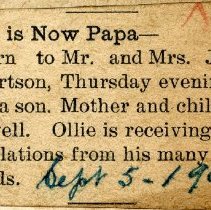 is Now Papa—
rn to Mr. and Mrs. J
rtson, Thursday evenin
a son. Mother and chil
ell. Ollie is receiving
lations from his many
ds. Sept 5-19